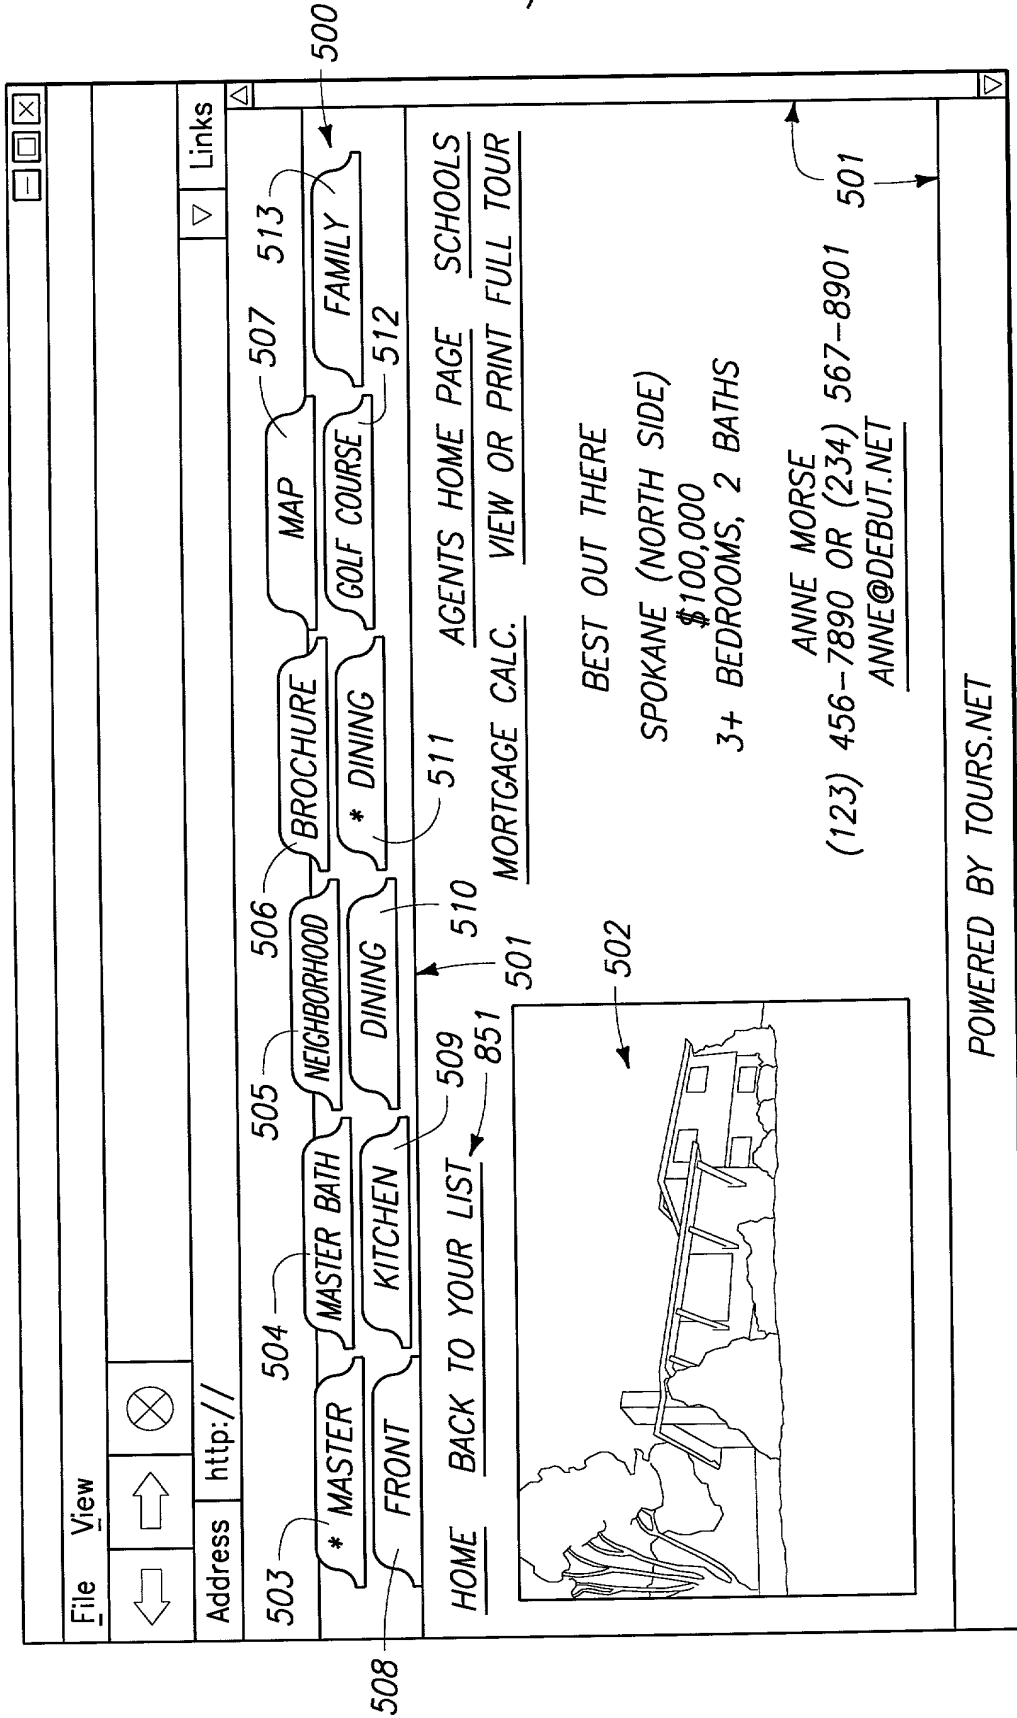 File View
Address http:// Links
503 504 505 506 507 513 500
* MASTER MASTER BATH NEIGHBORHOOD BROCHURE MAP FAMILY
508 FRONT KITCHEN DINING * DINING GOLF COURSE
509 510 511 512
HOME BACK TO YOUR LIST 851 501 AGENTS HOME PAGE SCHOOLS
MORTGAGE CALC. VIEW OR PRINT FULL TOUR
502
BEST OUT THERE
SPOKANE (NORTH SIDE)
$100,000
3+ BEDROOMS, 2 BATHS
ANNE MORSE
(123) 456-7890 OR (234) 567-8901
ANNE@DEBUT.NET
501
POWERED BY TOURS.NET